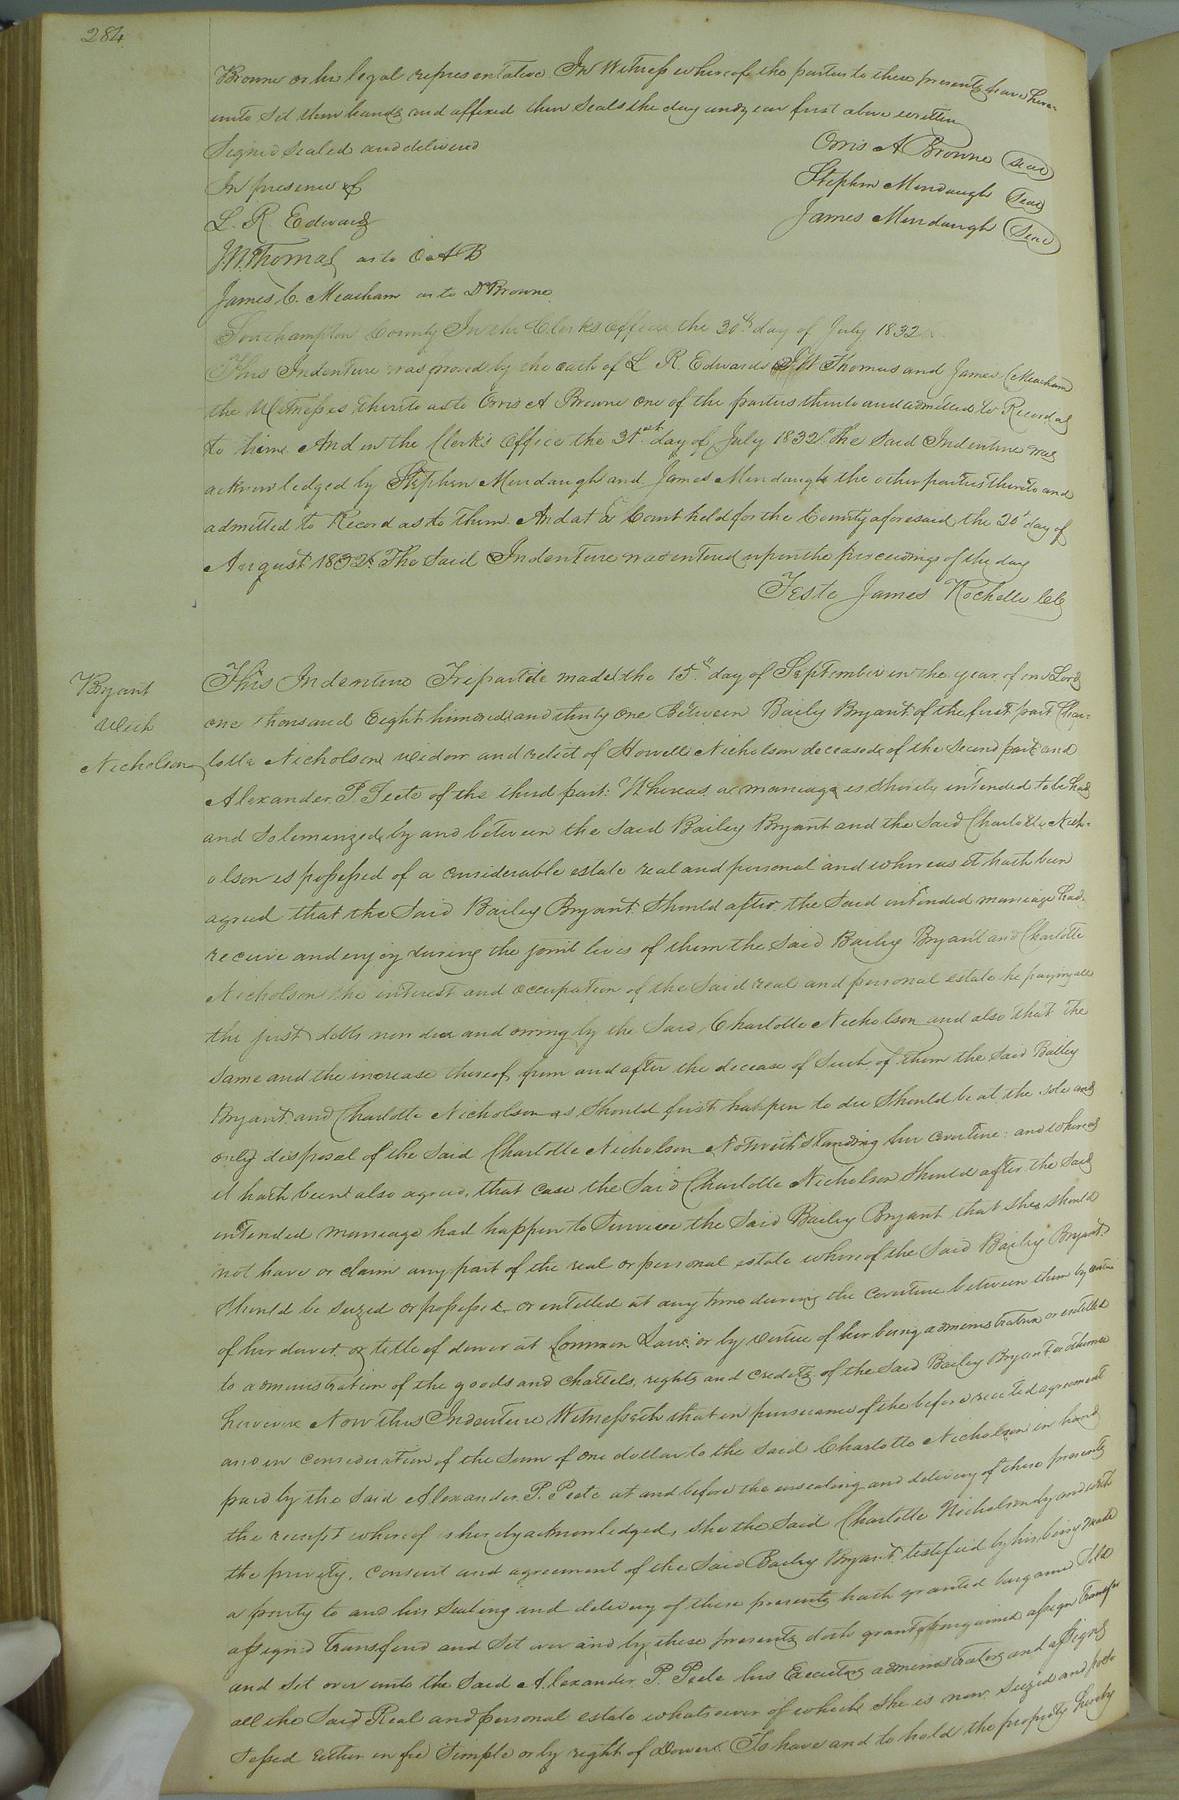 284
Browne or his legal representative In Witness whereof the parties to these presents have here-
unto Set their hands and affixed their Seals the day and year first above written
Signed Sealed and delivered Orris A Browne (Seal)
In presence of Stephen Mundaugh (Seal)
L. R. Edwards James Mundaugh (Seal)
J.W. Thomas as to O A B
James C. Meacham as to Dr Browne
Southampton County In the Clerks Office the 30th day of July 1832
This Indenture was proved by the oath of L R Edwards J W Thomas and James C Meacham
the Witnesses thereto as to Orris A Browne one of the parties thereto and admitted to Record as
to him And in the Clerk's Office the 31st day of July 1832 The Said Indenture was
acknowledged by Stephen Mundaugh and James Mundaugh the other parties thereto and
admitted to Record as to them And at a Court held for the County aforesaid the 20th day of
August 1832. The Said Indenture was entered upon the proceedings of the day
Teste James Rochelle CC
Bryant
With
Nicholson
This Indenture Tripartite made the 15th day of September in the year of our Lord
one thousand Eight hundred and thirty one Between Baily Bryant of the first part Char-
lotte Nicholson widow and relict of Howell Nicholson deceased of the Second part and
Alexander P Peete of the third part: Whereas a marriage is shortly intended to be had
and Solemnized by and between the Said Bailey Bryant and the Said Charlotte Nich-
olson is possessed of a considerable estate real and personal and whereas it hath been
agreed that the Said Bailey Bryant Should after the Said intended marriage had
receive and enjoy during the joint lives of them the Said Bailey Bryant and Charlotte
Nicholson the interest and occupation of the Said real and personal estate he paying all
the just debts now due and owing by the Said Charlotte Nicholson and also that the
Same and the increase thereof from and after the decease of Such of them the Said Bailey
Bryant and Charlotte Nicholson as Should first happen to die Should be at the sole and
only disposal of the Said Charlotte Nicholson Notwithstanding her coverture: and whereas
it hath been also agreed, that case the Said Charlotte Nicholson Should after the Said
intended marriage had happen to Survive the Said Bailey Bryant that She should
not have or claim any part of the real or personal estate whereof the Said Bailey Bryant
Should be seized or possessed or entitled at any time during the coverture between them by virtue
of her dower or title of dower at Common Law or by virtue of her being administratrix or entitled
to administration of the goods and Chattels, rights and credits of the Said Bailey Bryant or otherwise
howsoever Now this Indenture Witnesseth that in pursuance of the before recited agreement
and in consideration of the Sum of one dollar to the Said Charlotte Nicholson in hand
paid by the Said Alexander P. Peete at and before the ensealing and delivery of these presents
the receipt whereof is hereby acknowledged, she the Said Charlotte Nicholson by and with
the privity, consent and agreement of the Said Bailey Bryant testified by his being made
a party to and his Sealing and delivery of these presents hath granted bargained Sold
assigned transferred and Set over and by these presents doth grant bargain assign transfer
and Set over unto the Said Alexander P. Peete his Executors administrators and assigns
all the Said Real and personal estate whatsoever of which She is now Seized and pos-
sessed Either in fee Simple or by right of Dower. To have and to hold the property hereby